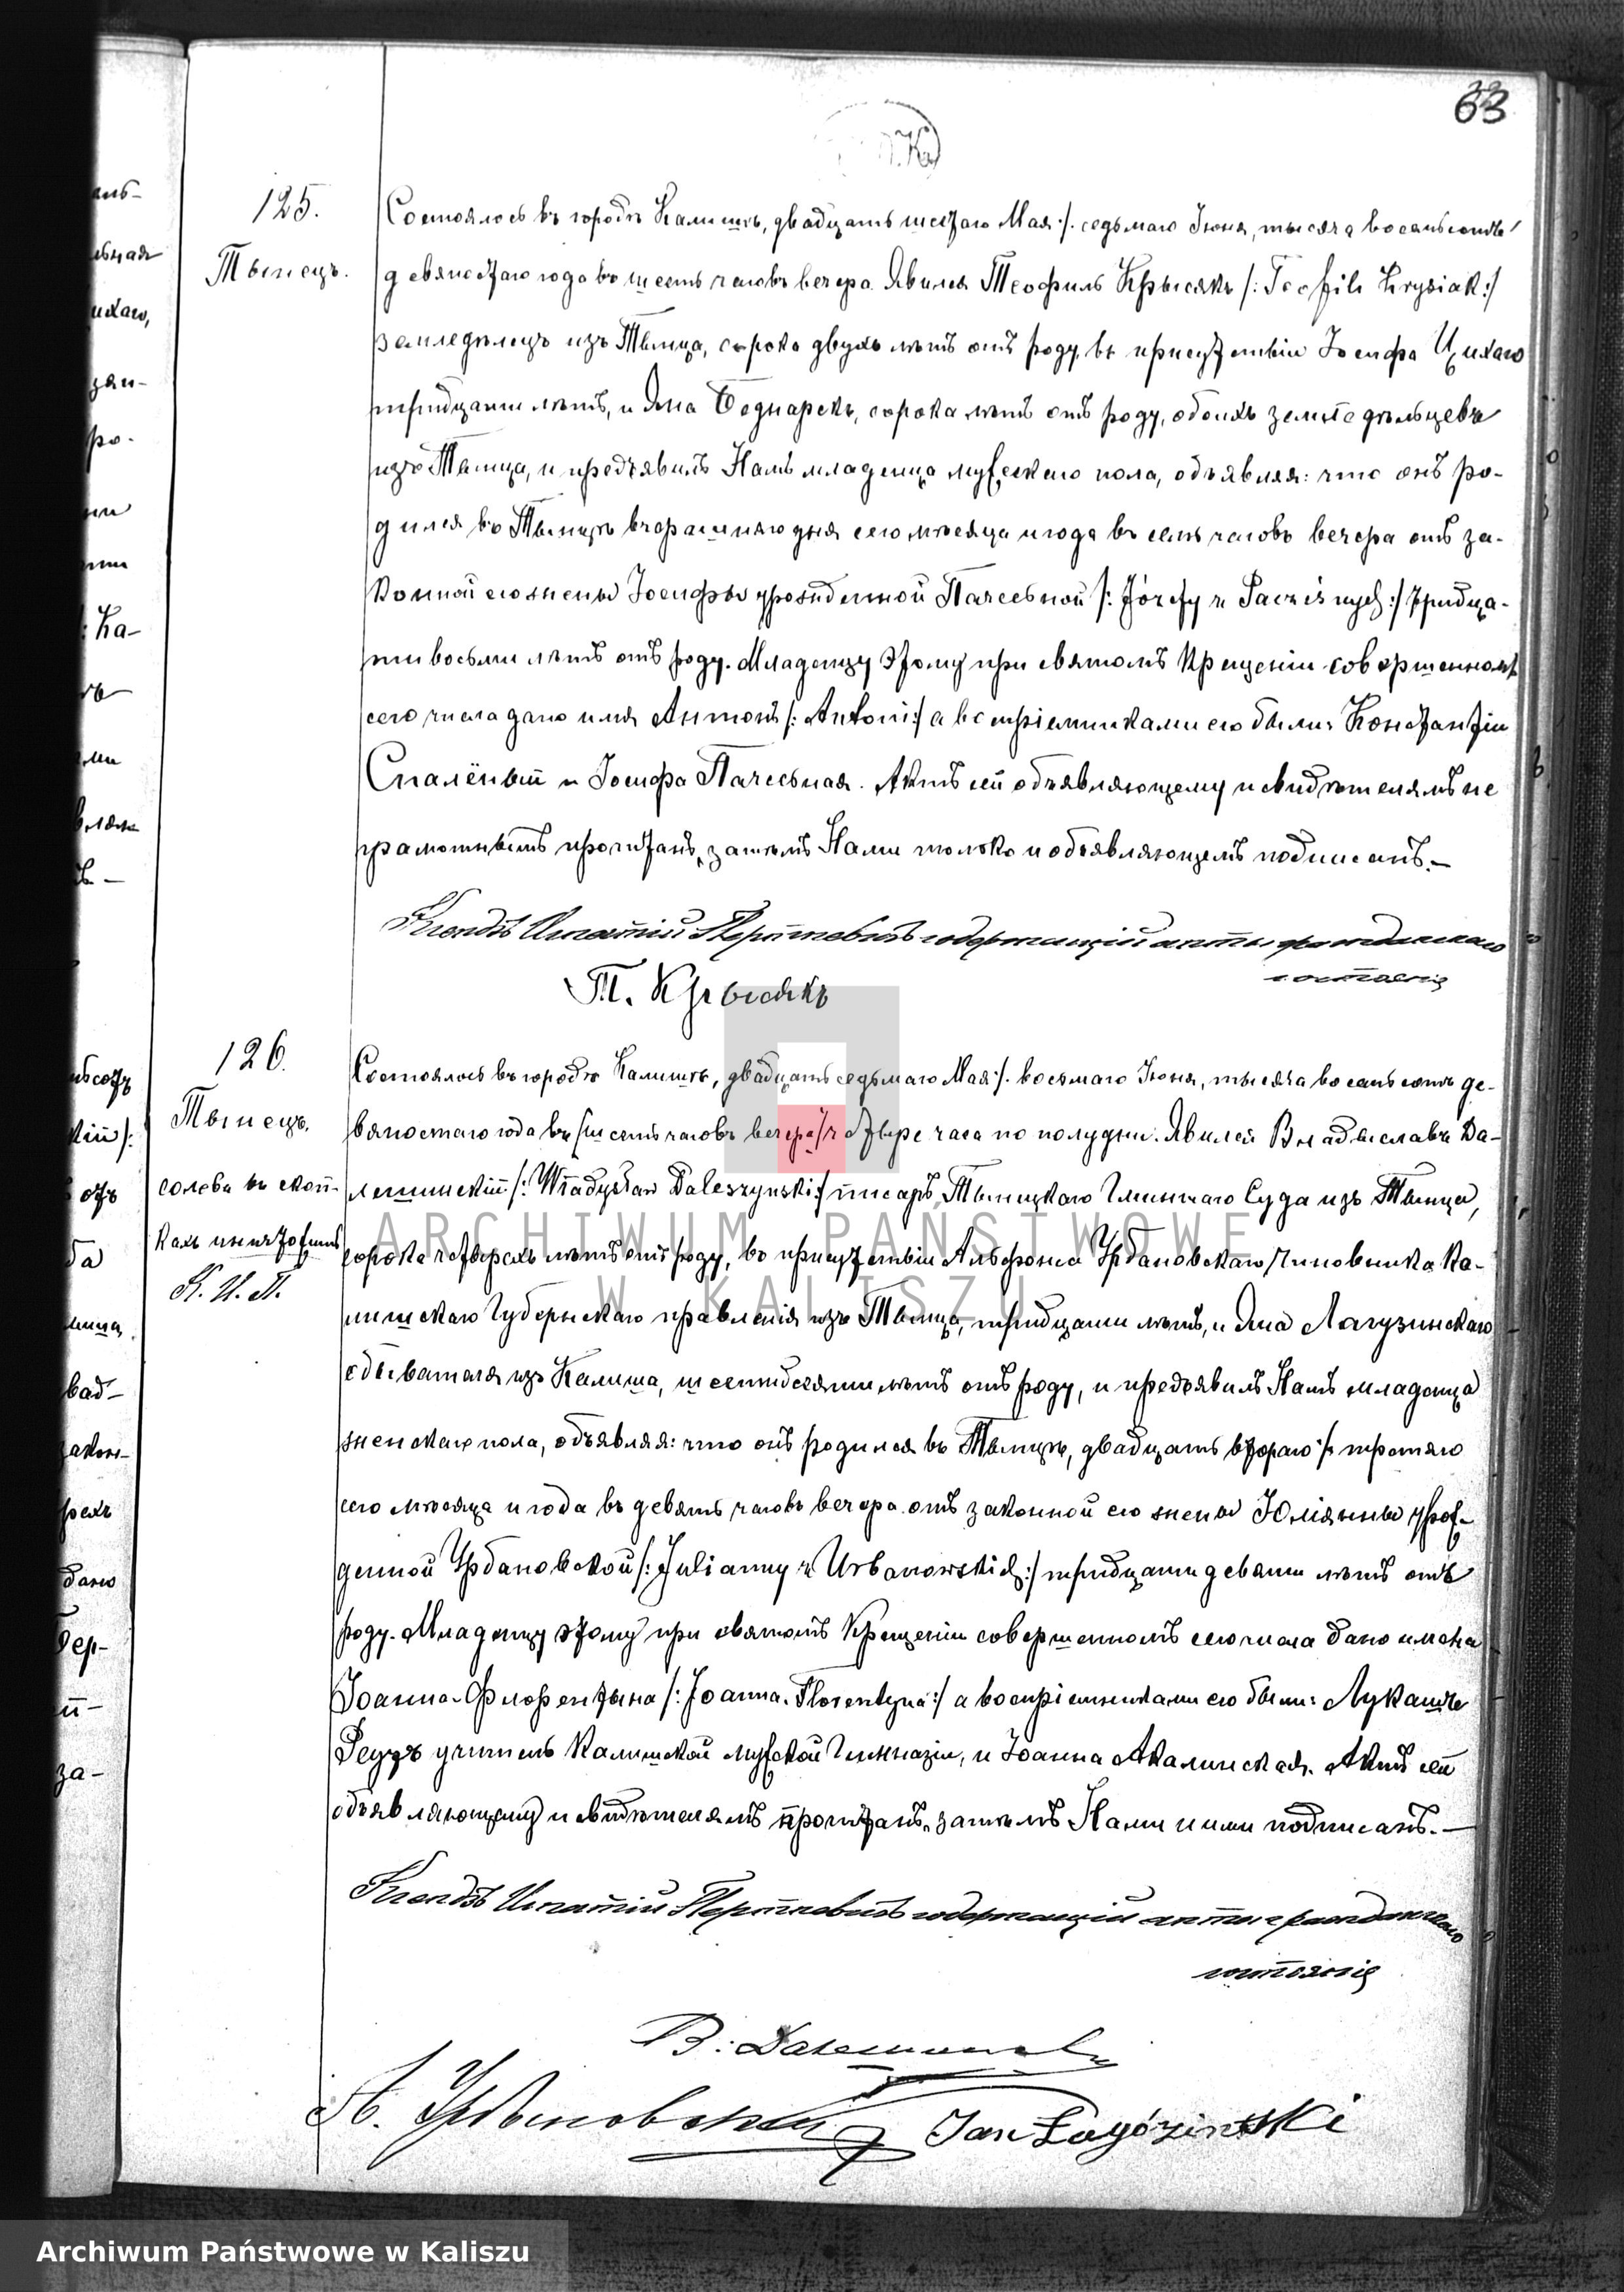 63
125.
Тынецъ.
Состоялось въ городѣ Калишѣ, двадцать шестаго Мая /. седьмаго Іюня, тысяча восемьсотъ
девяностаго года въ шесть часовъ вечера. Явился Теофиль Крысякъ /: Teofil Krysiak :/
земледѣлецъ изъ Тынца, сорока двухъ лѣтъ отъ роду, въ присутствіи Іосифа Цихаго
тридцати лѣтъ, и Яна Беднарекъ, сорока лѣтъ отъ роду, обоихъ земледѣльцевъ
изъ Тынца, и предъявилъ Намъ младенца мужескаго пола, объявляя: что онъ ро-
дился въ Тынцѣ вчерашняго дня сего мѣсяца и года въ семь часовъ вечера отъ за-
конной его жены Іосифы урожденной Пачесной /: Józefy z Paczésnych :/ тридца-
ти восьми лѣтъ отъ роду. Младенцу этому при святомъ Крещеніи совершенномъ
сего числа дано имя Антонъ /: Antoni :/ а воспріемниками его были: Константін
Спалёный и Іосифа Пачесьная. Актъ сей объявляющему и свидѣтелямъ не
грамотнымъ прочитанъ, затѣмъ Нами только и объявляющемъ подписанъ. —
Ксендзъ Игнатій содержащій акты гражданскаго
состоянія
Т. Крысякъ
126.
Тынецъ.
солева въ скоп-
кахъ
К. И. П.
Состоялось въ городѣ Калишѣ, двадцать седьмаго Мая /. восьмаго Іюня, тысяча восемьсотъ де-
вяностаго года въ /шесть часовъ вечера/ четверо часа по полудни. Явился Владыславъ Да-
лешинскій /: Władysław Daleszynski :/ писарь Тыницкаго Гминнаго Суда изъ Тынца,
сорока четырехъ лѣтъ отъ роду, въ присутствіи Альфонса Урбановскаго Чиновника Ка-
лишскаго Губернскаго правленія изъ Тынца, тридцати лѣтъ, и Яна Лагузинскаго
обывателя изъ Калиша, шестидесяти лѣтъ отъ роду, и предъявилъ Намъ младенца
женскаго пола, объявляя: что онъ родился въ Тынцѣ, двадцать втораго /. третяго
сего мѣсяца и года въ девять часовъ вечера отъ законной его жены Юліянны урож-
денной Урбановской /: Julianny z Urbanowskich :/ тридцати девяти лѣтъ отъ
роду. Младенцу этому при святомъ Крещеніи совершенномъ сего числа дано имена
Іоанна-Флорентына /: Joanna. Florentyna :/ а воспріемниками его были: Лукашъ
учитель Калишской мужской Гимназіи, и Іоанна Акалинская. Актъ сей
объявляющему и свидѣтелямъ прочитанъ, затѣмъ Нами и ими подписанъ. —
Ксендзъ Игнатій содержащій акты гражданскаго
состоянія
В. Далешинскій
А. Урбановскій Jan Łagózinski
ARCHIWUM PAŃSTWOWE
W KALISZU
Archiwum Państwowe w Kaliszu